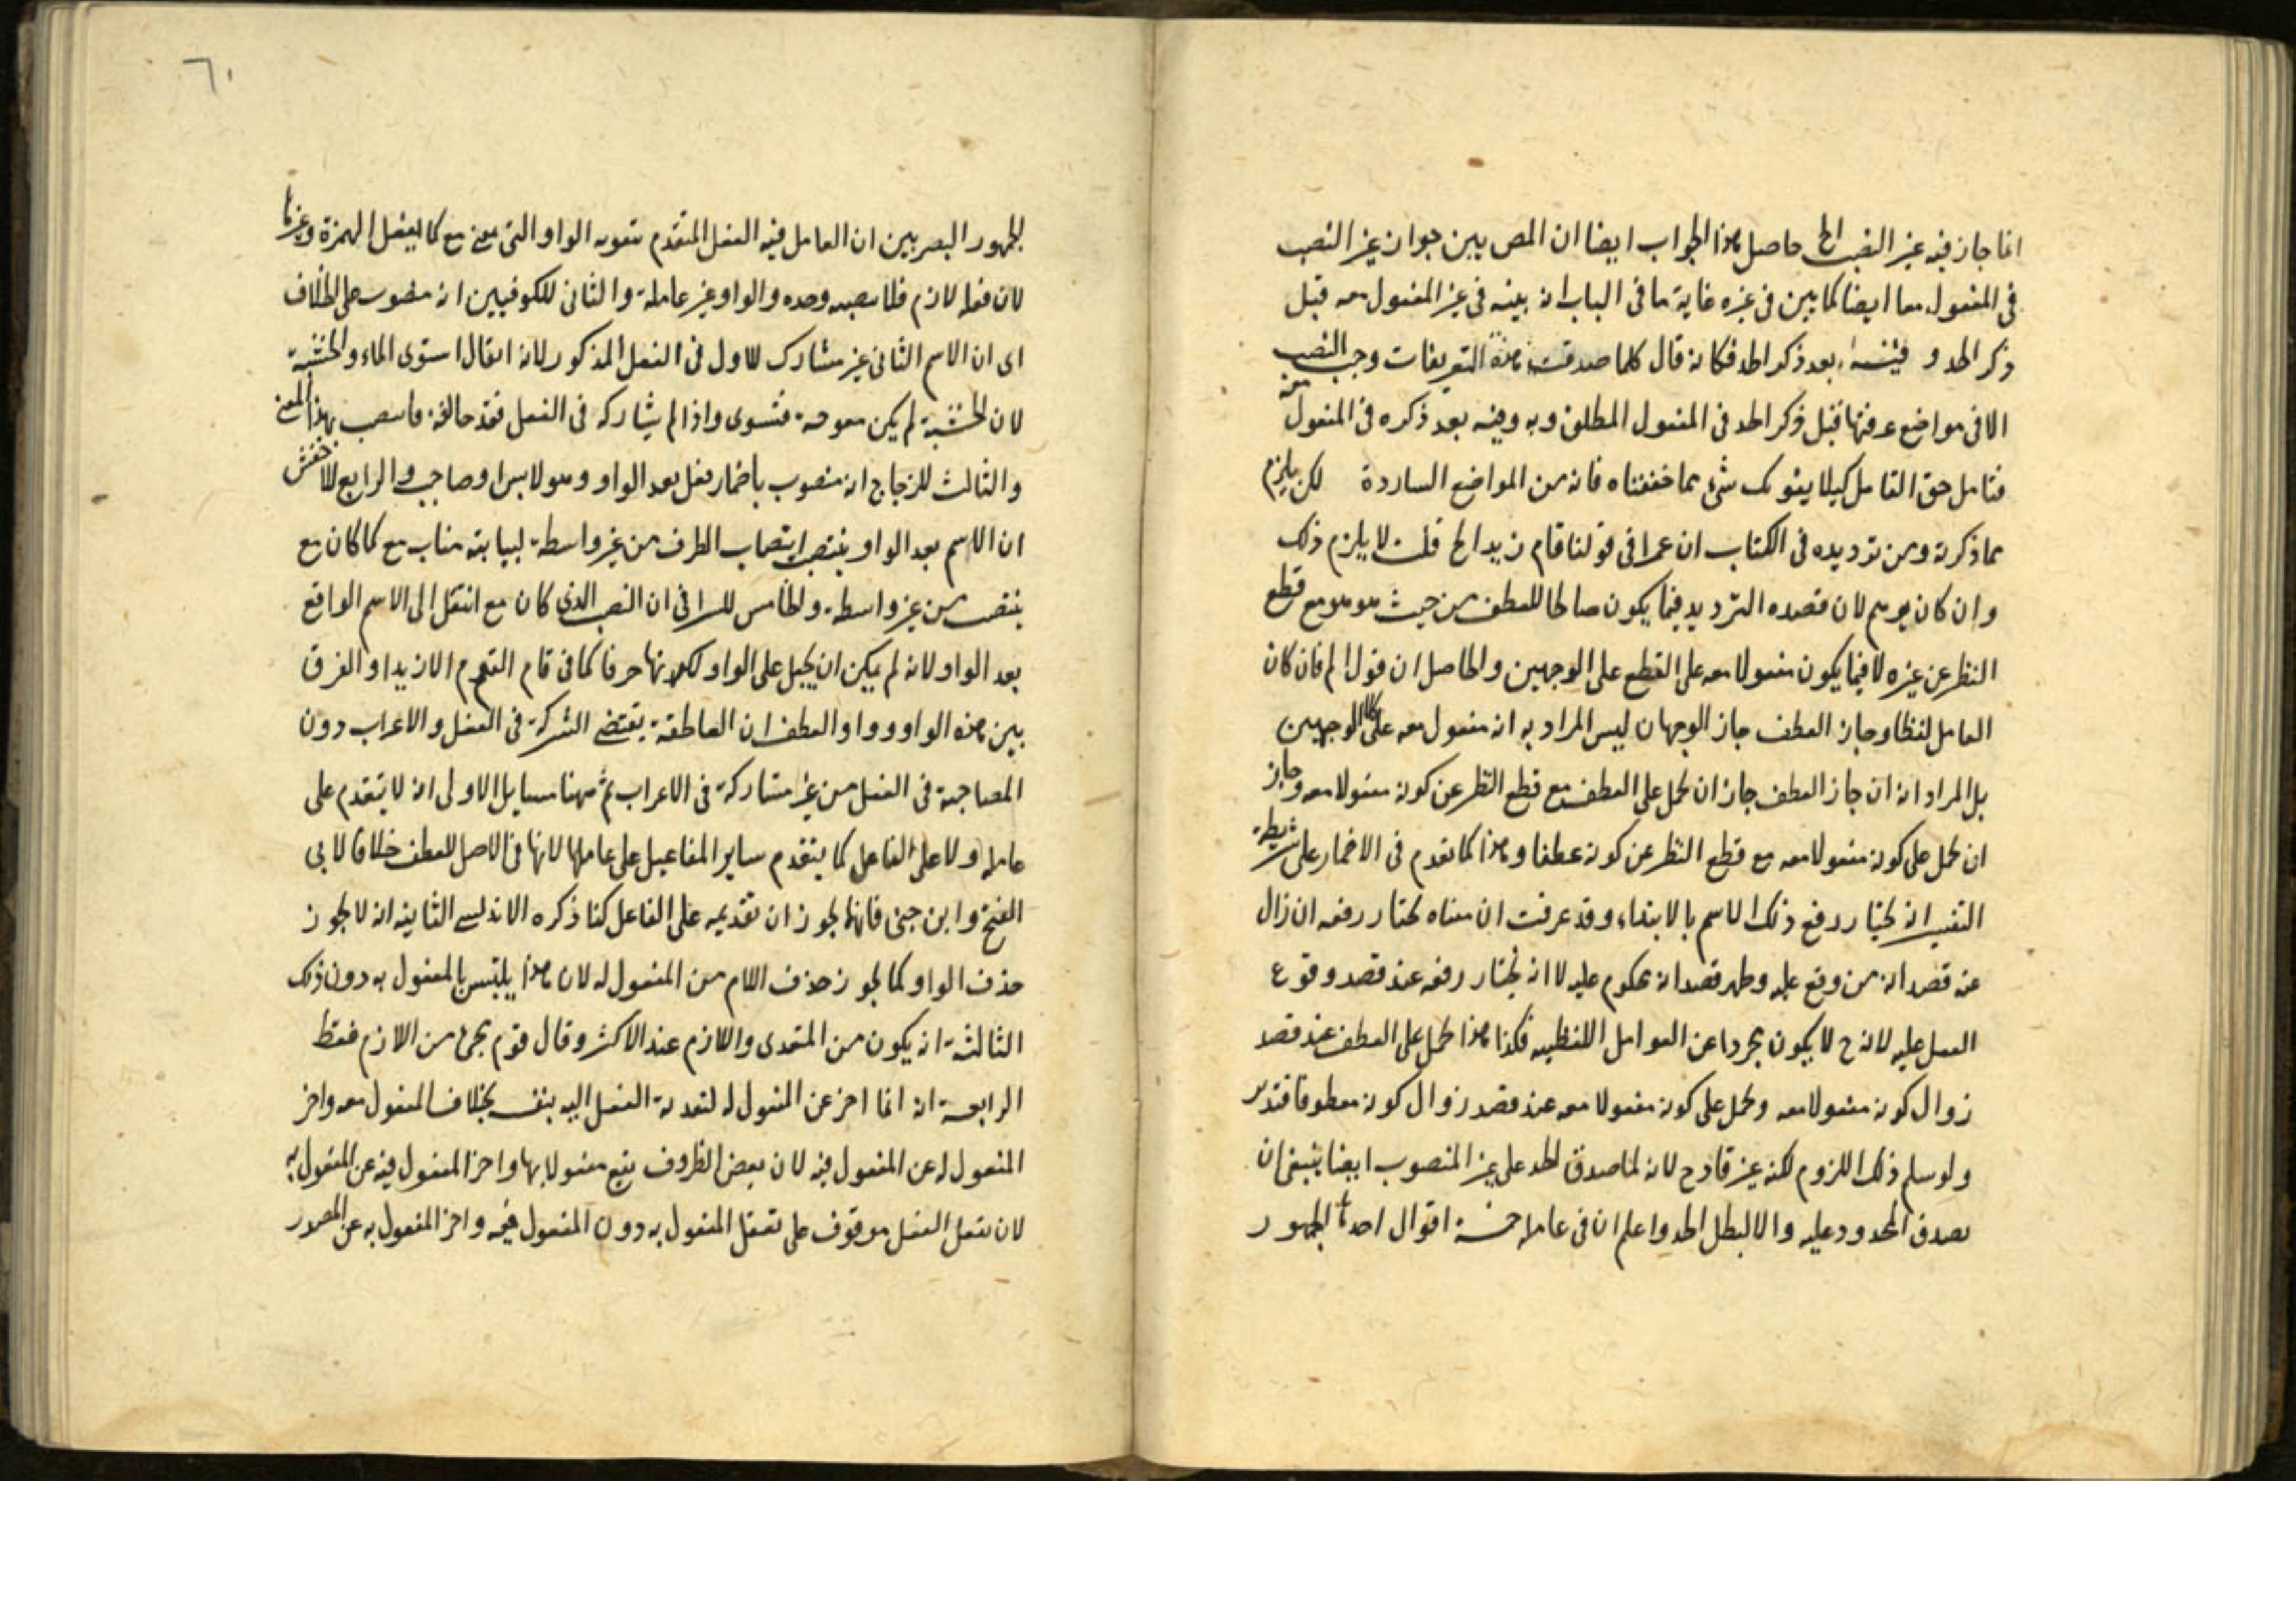 انما جاز فيه غير النصب الخ حاصل هذا الجواب ايضا ان المص يبين جواز غير النصب
فى المفعول معه ايضا كما بين فى غيره غاية ما فى الباب انه بينه فى غير المفعول معه قبل
ذكر الحد و فيه بعد ذكر الحد فكانه قال كلما صدقت هذه التعريفات وجب النصب
الا فى مواضع عرفتها قبل ذكر الحد فى المفعول المطلق وبه وفيه بعد ذكره فى المفعول معه
فتامل حق التامل كيلا يفوتك شئ مما حققناه فانه من المواضع الساردة لكن يلزم
مما ذكرته ومن ترديده فى الكتاب ان عمرا فى قولنا قام زيد الخ قلت لا يلزم ذلك
وان كان يوهم لان قصده الترديد فيما يكون صالحا للعطف من حيث هو هو مع قطع
النظر عن غيره لا فيما يكون مفعولا معه على القطع على الوجهين والحاصل ان قوله فان كان
العامل لفظا وجاز العطف جاز الوجهان ليس المراد به انه مفعول معه على كلا الوجهين
بل المراد انه ان جاز العطف جاز ان يحمل على العطف مع قطع النظر عن كونه مفعولا معه وجاز
ان يحمل على كونه مفعولا معه مع قطع النظر عن كونه عطفا وهذا كما تقدم فى الاضمار على شريطة
التفسير انه يختار رفع ذلك الاسم بالابتداء وقد عرفت ان معناه يختار رفعه ان زال
عنه قصد انه من وقع عليه وظهر قصد انه محكوم عليه لا انه يختار رفعه عند قصد وقوع
الفعل عليه لانه ح لا يكون مجردا عن العوامل اللفظيه فكذا هذا يحمل على العطف عند قصد
زوال كونه مفعولا معه ويحمل على كونه مفعولا معه عند قصد زوال كونه معطوفا فتدبر
ولو سلم ذلك اللزوم لكنه غير قادح لانه لما صدق الحد على غير المنصوب ايضا ينبغى ان
يصدق المحدود عليه والا لبطل الحد واعلم ان فى عامله خمسة اقوال احدها لجمهور
٦٠
لجمهور البصريين ان العامل فيه الفعل المتقدم بتقويه الواو التى بمعنى مع كما يعمل الهمزة وغيرها
لان فعله لازم فلا ينصبه وحده والواو غير عاملة والثانى للكوفيين انه منصوب على الخلاف
اى ان الاسم الثانى غير مشارك للاول فى الفعل المذكور لانه ايقال استوى الماء والخشبة
لان الخشبة لم يكن معوجة فتسوى واذا لم يشاركه فى الفعل فقد خالفه فانتصب بهذا المعنى
والثالث للزجاج انه منصوب باضمار فعل بعد الواو وهو لابس او صاحب والرابع للاخفش
ان الاسم بعد الواو ينتصب انتصاب الظرف من غير واسطة لنيابته مناب مع كما كان مع
ينتصب من غير واسطة والخامس للسرافى ان النصب الذى كان مع انتقل الى الاسم الواقع
بعد الواو لانه لم يكن ان يجبل على الواو لكونها حرفا كما فى قام القوم الا زيدا والفرق
بين هذه الواو وواو العطف ان العاطفة يقتضى الشركة فى الفعل والاعراب دون
المصاحبة فى الفعل من غير مشاركة فى الاعراب ثم ههنا مسايل الاولى انه لا يتقدم على
عامله ولا على الفاعل كما يتقدم ساير المفاعيل على عاملها لانها فى الاصل للعطف خلافا لابى
الفتح وابن جنى فانهما يجوزان تقديمه على الفاعل كذا ذكره الاندلسى الثانيه انه لا يجوز
حذف الواو كما يجوز حذف اللام من المفعول له لان هذا يلتبس بالمفعول به دون ذلك
الثالثة انه يكون من المتعدى واللازم عند الاكثر وقال قوم يجئ من اللازم فقط
الرابعة انه انما اخر عن المفعول له لتعدية الفعل اليه بنفسه بخلاف المفعول معه واخر
المفعول له عن المفعول فيه لان بعض الظروف يقع مفعولا بها واخر المفعول فيه عن المفعول به
لان تعقل الفعل موقوف على تعقل المفعول به دون المفعول فيه واخر المفعول به عن المصدر